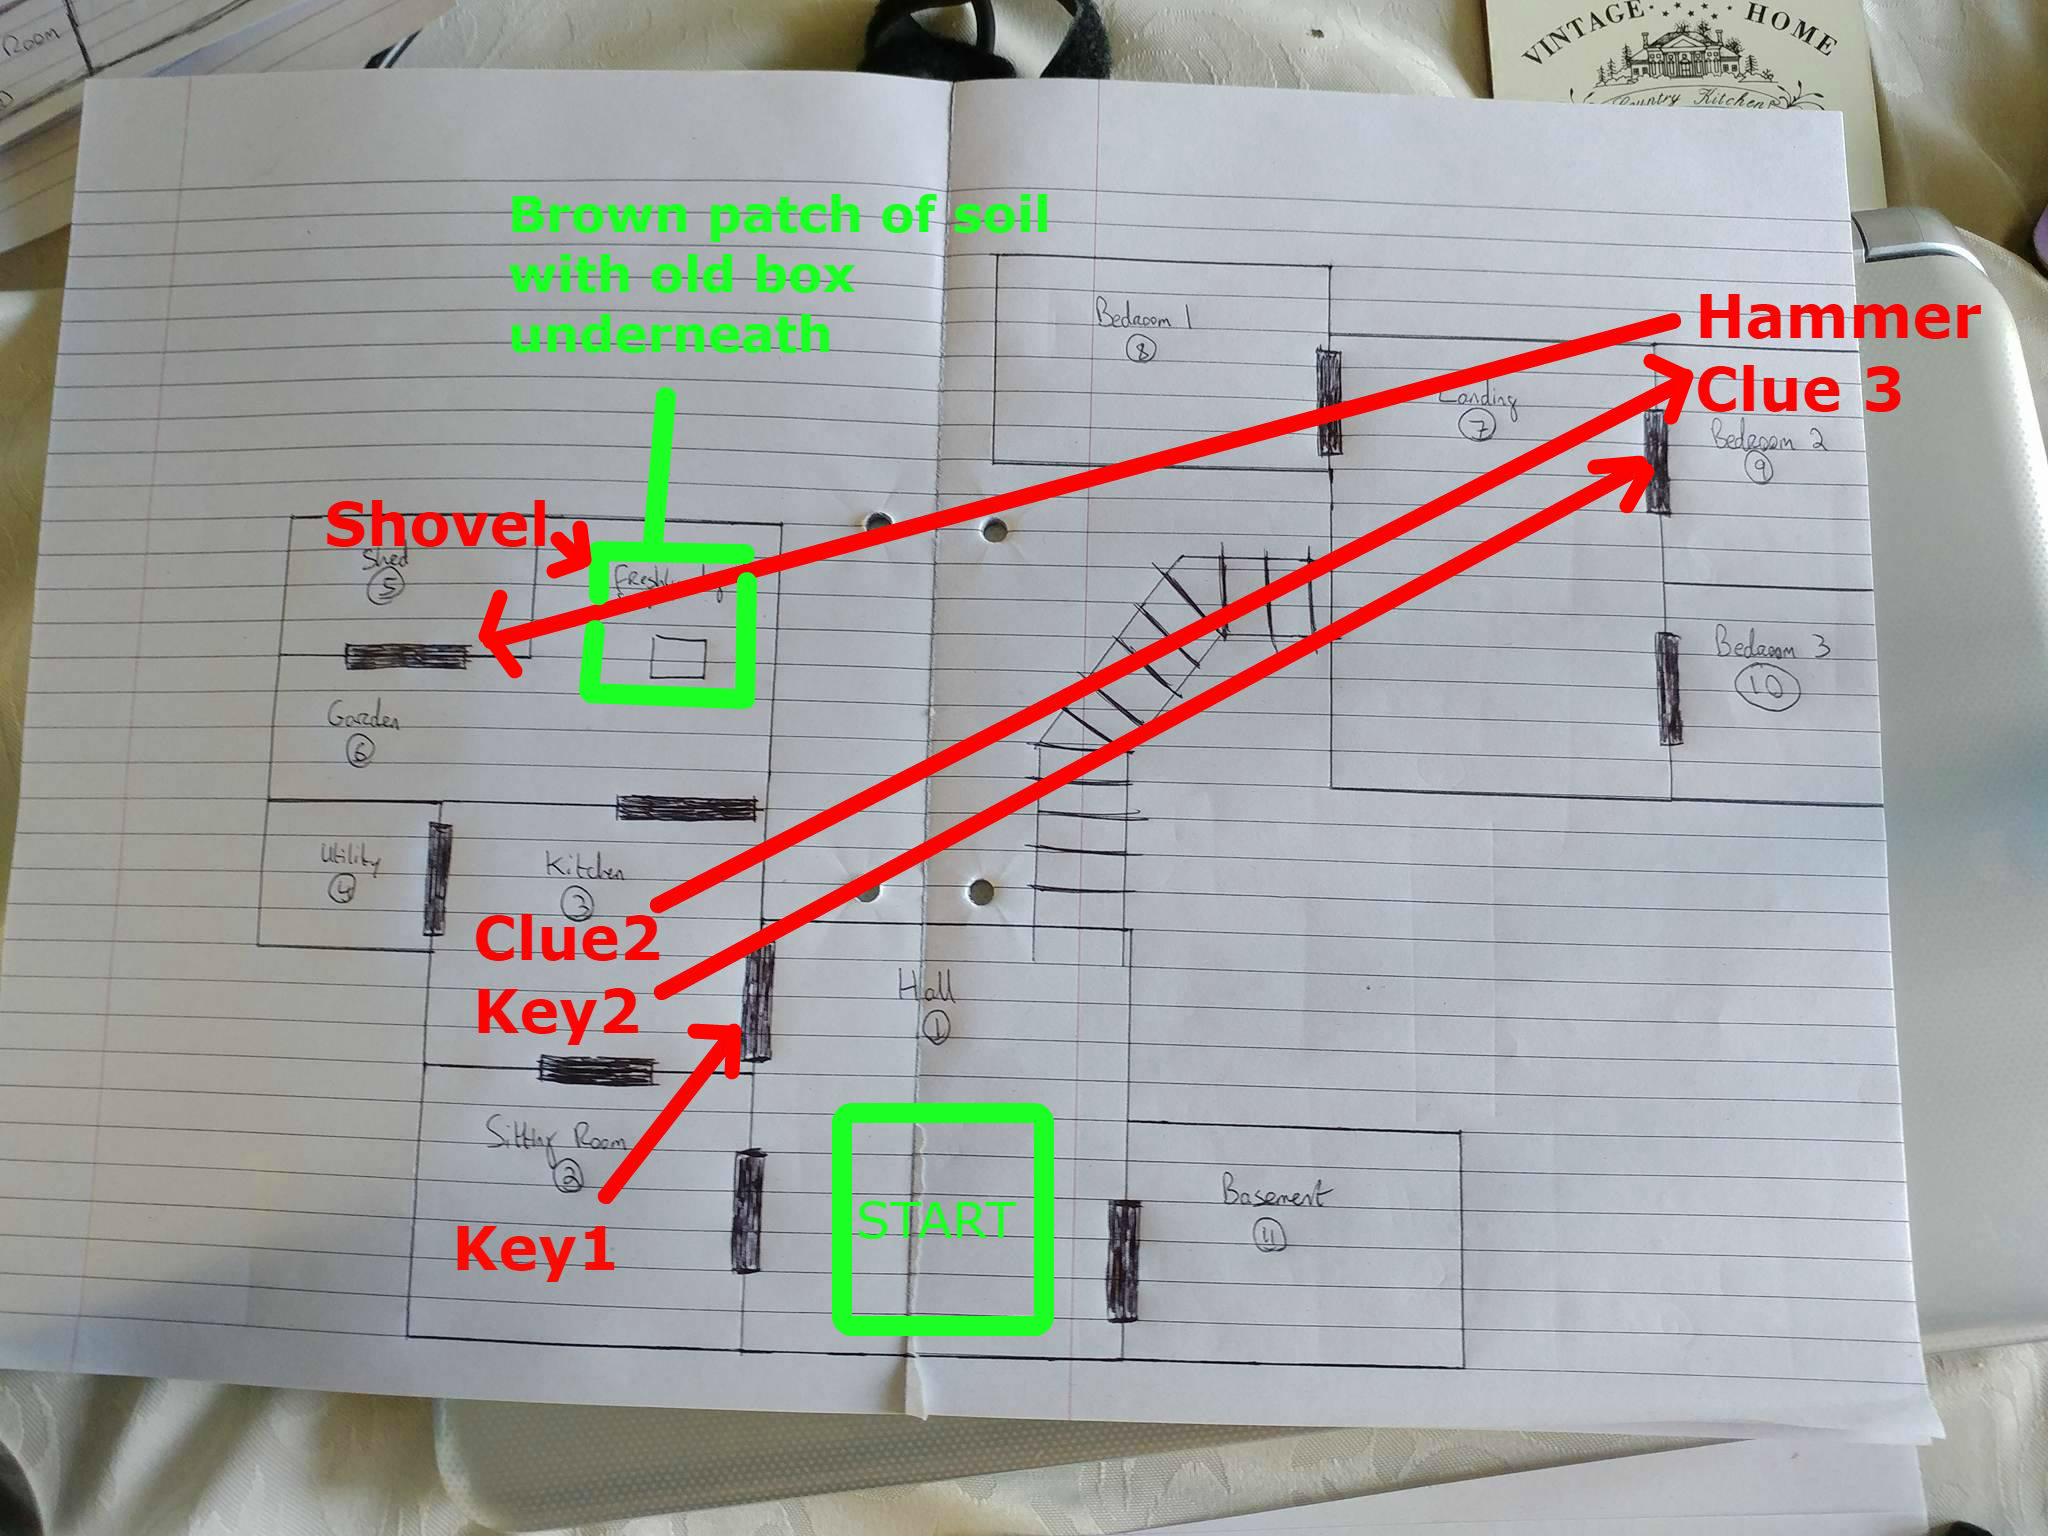 Room
VINTAGE HOME
Country Kitchen
Brown patch of soil
with old box
underneath
Bedroom 1
8
Hammer
Clue 3
Landing
7
Bedroom 2
9
Shovel
Shed
5
Bedroom 3
10
Garden
6
Utility
4
Kitchen
3
Clue2
Key2
Hall
1
Sitting Room
2
Key1
START
Basement
11